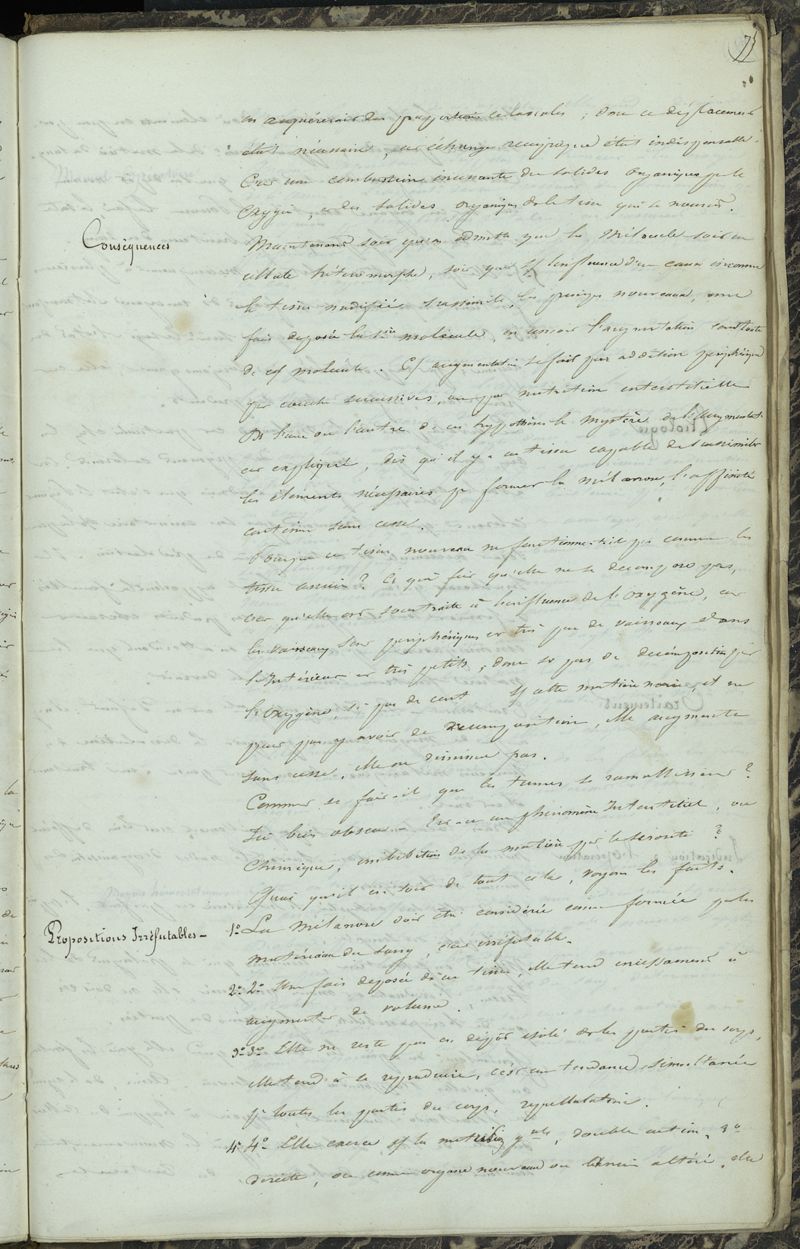 75
en acquéreraient des proportions colossales ; donc ce déplacement
était nécessaire, cet échange réciproque était indispensable.
Car une combustion incessante des solides organiques par le
oxygène, et des solides organiques de le tissu qui se nourrit.
Conséquences
Maintenant soit qu'on admette que la molécule soit une
cellule hétéromorphe, soit que sous l'influence d'une cause inconnue
le tissu modifié s'assimile, les principes nouveaux, une
fois déposée la 1ère molécule, on conçoit l'augmentation constante
de cette molécule. Cette augmentation se fait par addition périphérique
par couches successives, ou par nutrition interstitielle
Ds l'une ou l'autre de ces hypothèses le mystère de l'augmentation
est expliqué, dès qu'il y a un tissu capable de s'assimiler
les éléments nécessaires pr former la mélanose, l'affinité
continue sans cesse.
Pourquoi ce tissu nouveau ne fonctionne-t-il pas comme les
tissus anciens ? Ce qui fait qu'elle ne se décompose pas,
c'est qu'elle est soustraite à l'influence de l'oxygène, car
les vaisseaux sont périphériques et très peu de vaisseaux dans
l'intérieur et très petits, donc pas de décomposition par
l'oxygène, cette matière noire, et ne
pour pas y avoir de décomposition, elle augmente
sans cesse, elle ne diminue pas.
Comment se fait-il que les tumeurs se ramollissent ?
Ici bien obscur. Est-ce un phénomène interstitiel, ou
chimique, imbibition de la matière par la sérosité ?
Quoi qu'il en soit de tout cela, voyons les faits.
Propositions Irréfutables -
1° La mélanose doit être considérée comme formée par les
matériaux du sang, c'est irréfutable.
2° 2° Une fois déposée ds un tissu, elle tend incessamment à
augmenter de volume.
3° 3° Elle ne reste pas en dépôt isolé ds les parties du corps,
elle tend à se reproduire, c'est une tendance simultanée
ds toutes les parties du corps,
4° 4° Elle exerce sur la nutrition gale, double action,
directe, ou comme organe nouveau ou ancien altéré, elle